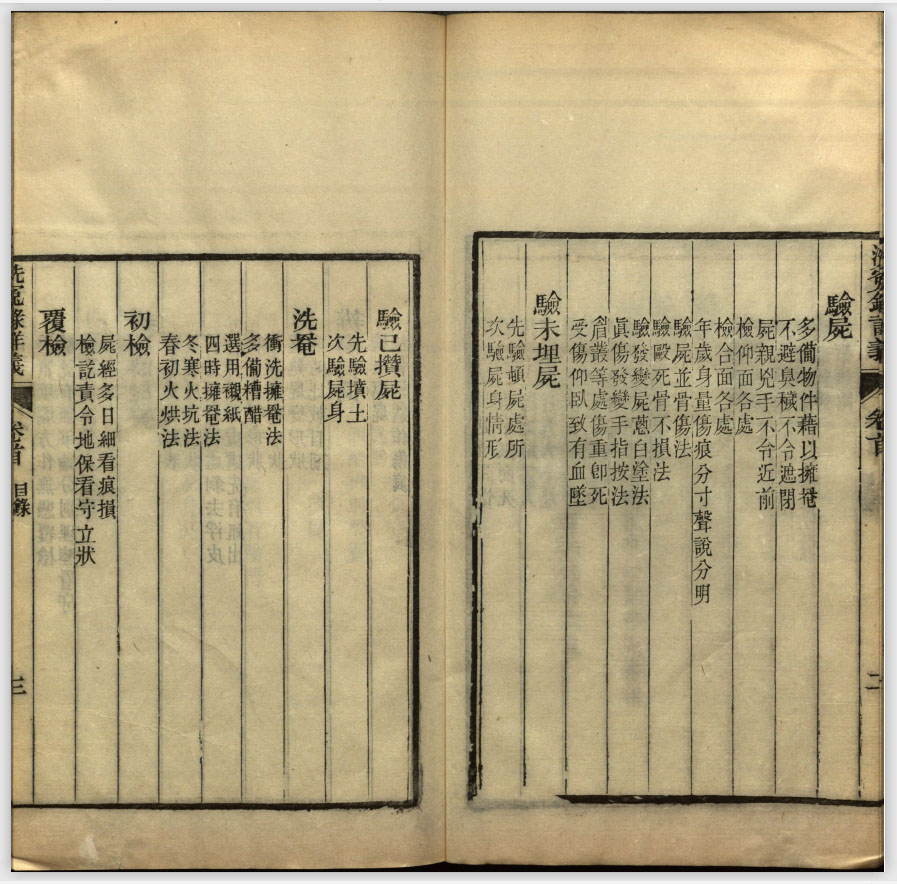 驗屍
多備物件藉以擁罨
不避臭穢不令遮閉
屍親兇手不令近前
檢仰面各處
檢合面各處
年歲身量傷痕分寸聲說分明
驗屍並骨傷法
驗毆死骨不損法
驗發變屍蔥白塗法
眞傷發變手指按法
肩叢等處傷重卽死
受傷仰臥致有血墜
驗未埋屍
先驗頓屍處所
次驗屍身情形
驗已攢屍
先驗墳土
次驗屍身
洗罨
衝洗擁罨法
多備糟醋
選用襯紙
四時擁罨法
冬寒火坑法
春初火烘法
初檢
屍經多日細看痕損
檢訖責令地保看守立狀
覆檢
洗冤錄詳義
卷首
目錄
三